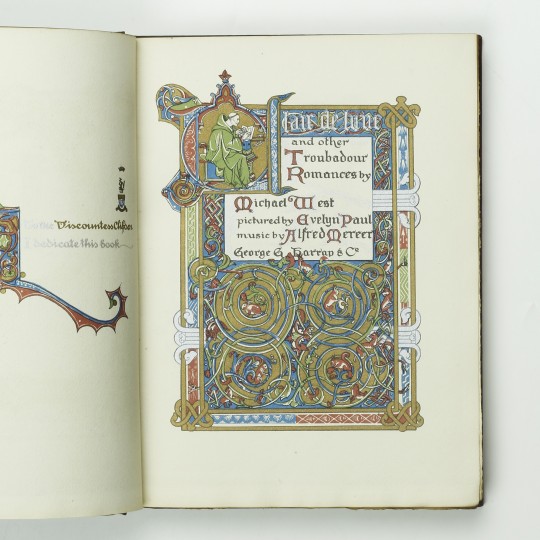 the Viscountess
dedicate this book
Clair de lune
and other
Troubadour
Romances by
Michael West
pictured by Evelyn Paul
music by Alfred Mercer
George G. Harrap & Cº